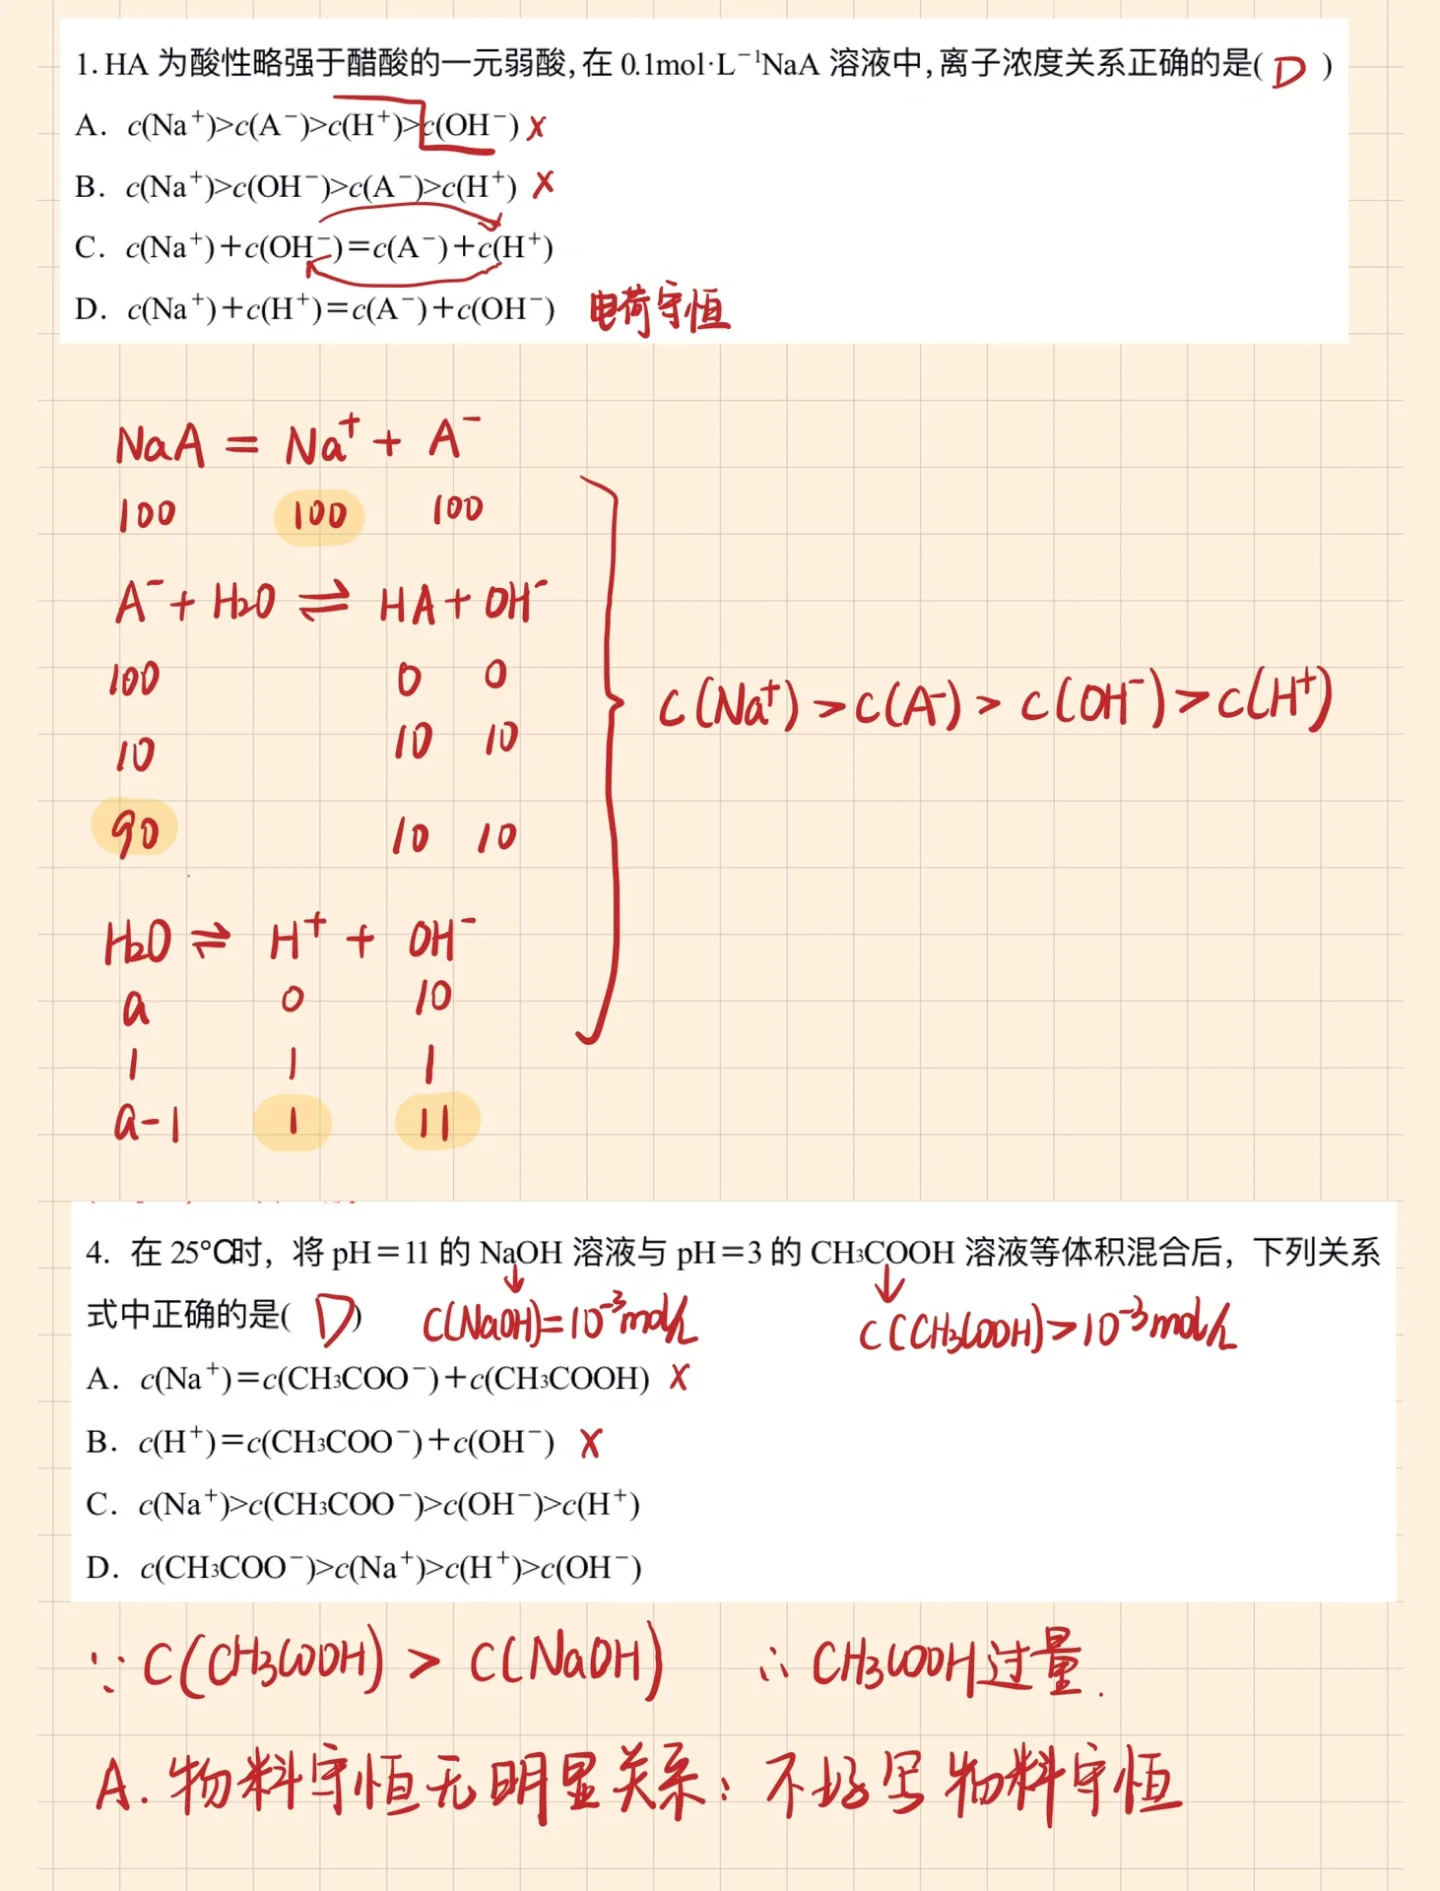 1. HA 为酸性略强于醋酸的一元弱酸,在 0.1mol·L⁻¹NaA 溶液中,离子浓度关系正确的是( D )
A. c(Na⁺)>c(A⁻)>c(H⁺)>c(OH⁻) ×
B. c(Na⁺)>c(OH⁻)>c(A⁻)>c(H⁺) ×
C. c(Na⁺)+c(OH⁻)=c(A⁻)+c(H⁺)
D. c(Na⁺)+c(H⁺)=c(A⁻)+c(OH⁻) 电荷守恒
NaA = Na⁺ + A⁻
100 100 100
A⁻ + H₂O ⇌ HA + OH⁻
100 0 0
10 10 10
90 10 10
H₂O ⇌ H⁺ + OH⁻
a 0 10
1 1 1
a-1 1 11
C(Na⁺) > C(A⁻) > C(OH⁻) > C(H⁺)
4. 在 25℃时, 将 pH=11 的 NaOH 溶液与 pH=3 的 CH₃COOH 溶液等体积混合后, 下列关系
式中正确的是( D ) C(NaOH)=10⁻³mol/L C(CH₃COOH)>10⁻³mol/L
A. c(Na⁺)=c(CH₃COO⁻)+c(CH₃COOH) ×
B. c(H⁺)=c(CH₃COO⁻)+c(OH⁻) ×
C. c(Na⁺)>c(CH₃COO⁻)>c(OH⁻)>c(H⁺)
D. c(CH₃COO⁻)>c(Na⁺)>c(H⁺)>c(OH⁻)
∵ C(CH₃COOH) > C(NaOH) ∴ CH₃COOH过量.
A. 物料守恒无明显关系: 不好写物料守恒